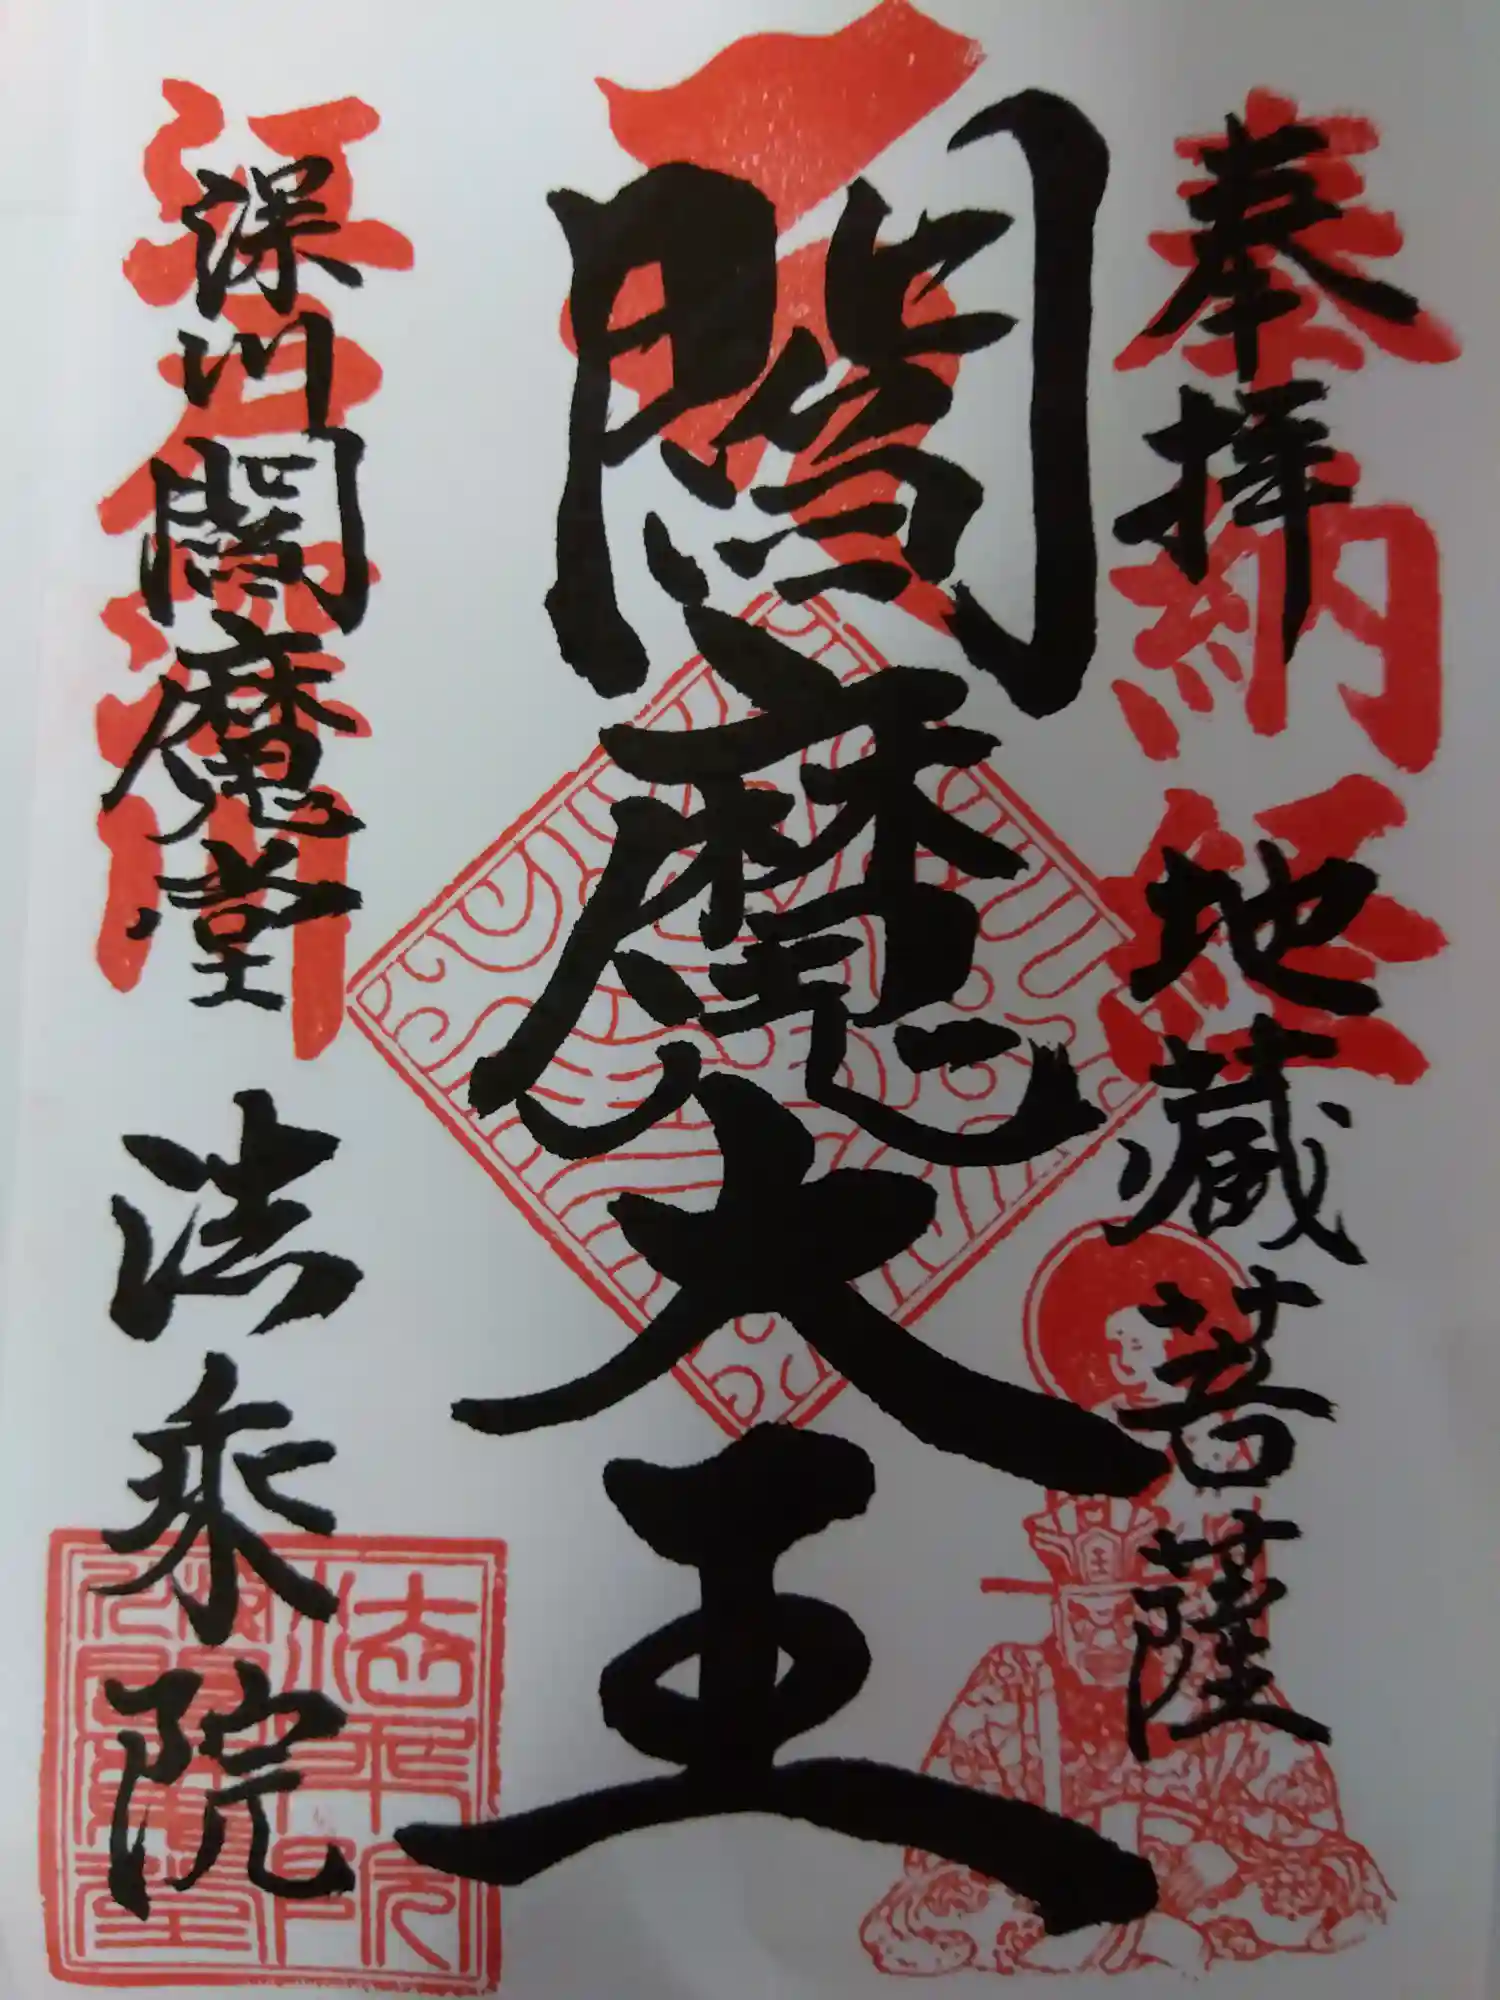 奉拝
地蔵菩薩
奉納経
閻魔大王
深川閻魔堂
法乗院
江戸深川
法乗院
深川閻魔堂
王